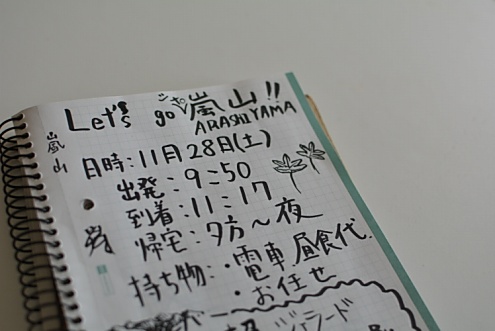 Let's go 嵐山!!
ARASHIYAMA
嵐山
日時:11月28日(土)
出発:9:50
到着:11:17
帰宅:夕方~夜
持ち物:・電車、昼食代、
・お任せ
ジェラード